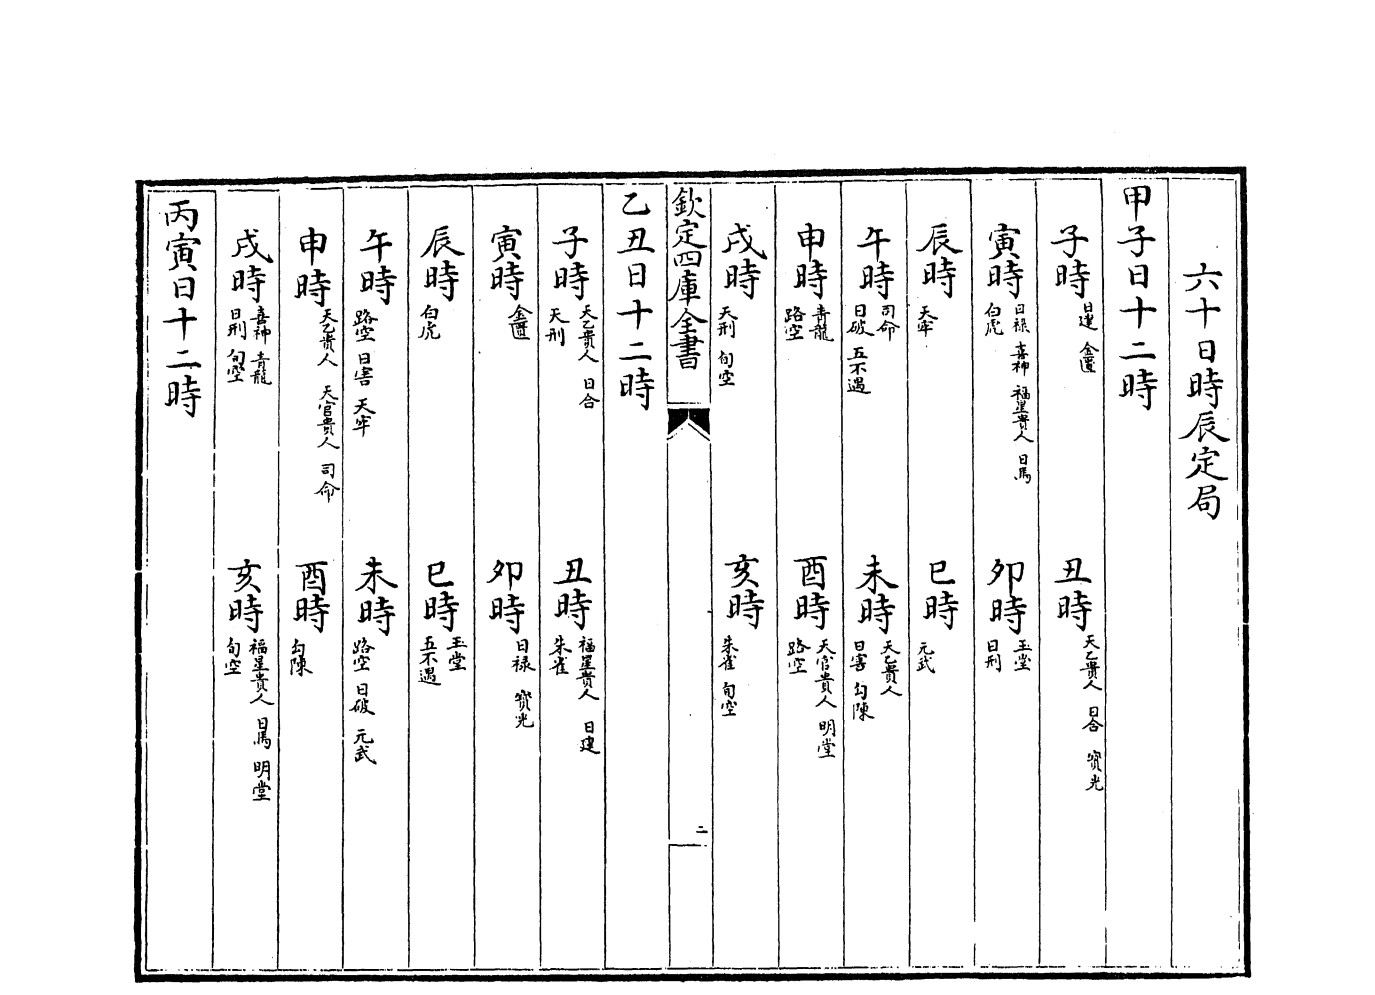 六十日時辰定局
甲子日十二時
子時 日建 金匱 丑時 天乙貴人 日合 寳光
寅時 日禄 喜神 福星貴人 日馬 白虎 卯時 玉堂 日刑
辰時 天牢 巳時 元武
午時 司命 日破 五不遇 未時 天乙貴人 日害 勾陳
申時 青龍 路空 酉時 天官貴人 明堂 路空
戌時 天刑 旬空 亥時 朱雀 旬空
欽定四庫全書
二
乙丑日十二時
子時 天乙貴人 日合 天刑 丑時 福星貴人 日建 朱雀
寅時 金匱 卯時 日禄 寳光
辰時 白虎 巳時 玉堂 五不遇
午時 路空 日害 天牢 未時 路空 日破 元武
申時 天乙貴人 天官貴人 司命 酉時 勾陳
戌時 喜神 青龍 日刑 旬空 亥時 福星貴人 日馬 明堂 旬空
丙寅日十二時